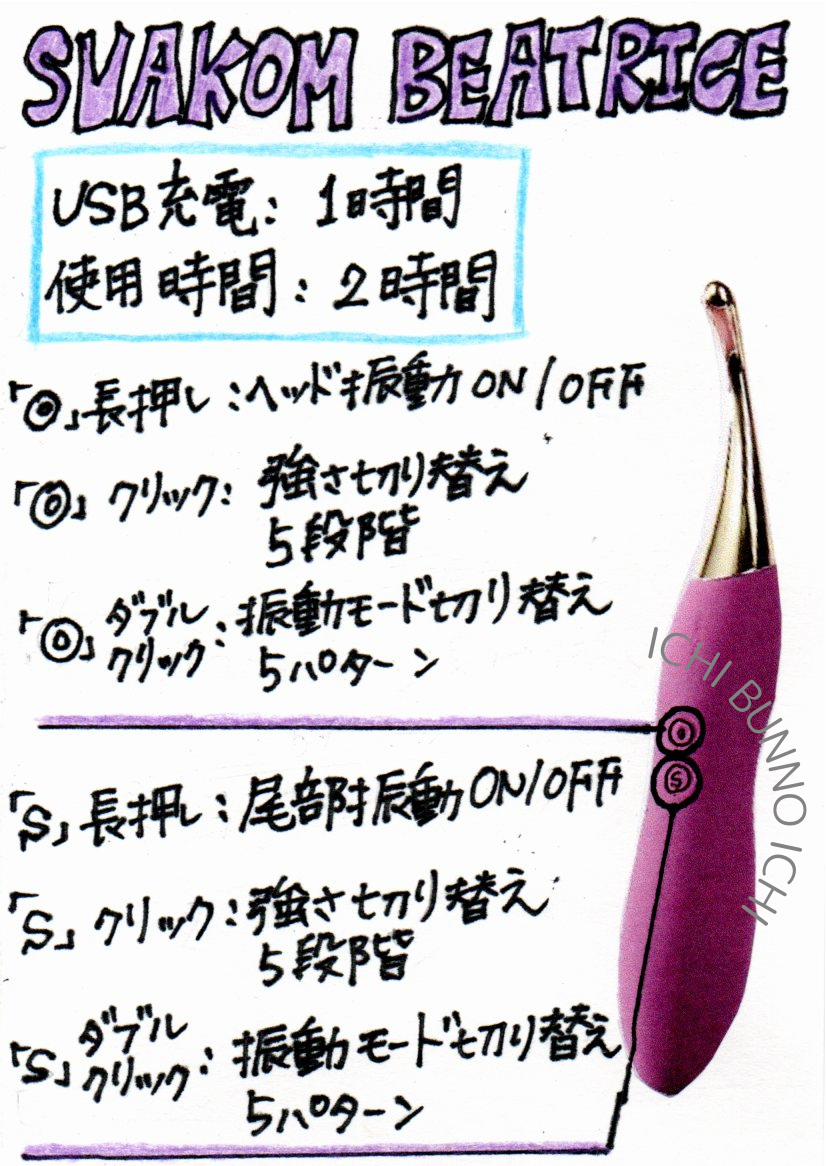 SVAKOM BEATRICE
USB充電: 1時間
使用時間: 2時間
「◎」長押し:ヘッド振動ON/OFF
「◎」クリック: 強さ切り替え
5段階
「◎」ダブルクリック: 振動モード切り替え
5パターン
「S」長押し: 尾部振動ON/OFF
「S」クリック: 強さ切り替え
5段階
「S」ダブルクリック: 振動モード切り替え
5パターン
S
ICHI BUNNO ICHI